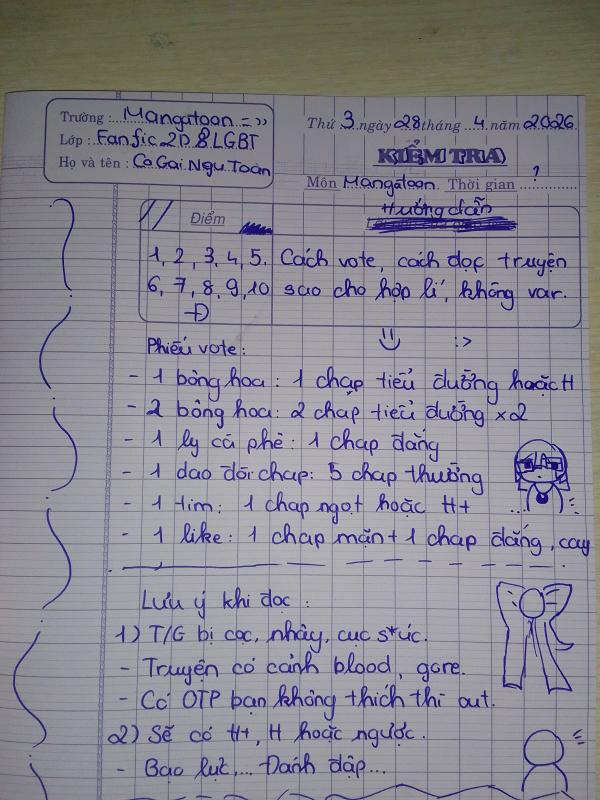 Trường : Mangatoon =>>
Thứ 3 ngày 28 tháng 4 năm 2026
Lớp : Fanfic 2D & LGBT
KIỂM TRA
Họ và tên : Cô Gái Ngu Toán
Môn Mangatoon. Thời gian ?
Điểm
Hướng dẫn
1, 2, 3, 4, 5. Cách vote, cách đọc truyện
6, 7, 8, 9, 10 sao cho hợp lí, không var.
=D
:>
Phiếu vote:
- 1 bông hoa : 1 chap tiểu đường hoặc H
- 2 bông hoa: 2 chap tiểu đường x2
- 1 ly cà phê: 1 chap đắng
- 1 dao dõi chap: 5 chap thường
- 1 tim: 1 chap ngọt hoặc H+
- 1 like: 1 chap mặn + 1 chap đắng, cay
Lưu ý khi đọc :
1) T/G bị cọc, nhây, cục s*úc.
- Truyện có cảnh blood, gore.
- Có OTP bạn không thích thì out.
2) Sẽ có H+, H hoặc ngược.
- Bạo lực,... Đánh đập...